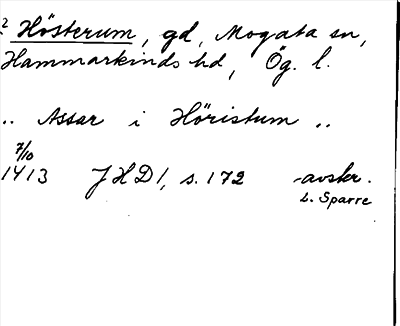 ? Hösterum, gd, Mogata sn,
Hammarkinds hd, Ög. l.
.. Assar i Höristum ..
7/10
1413 JHD 1, s. 172 -avskr.
L. Sparre